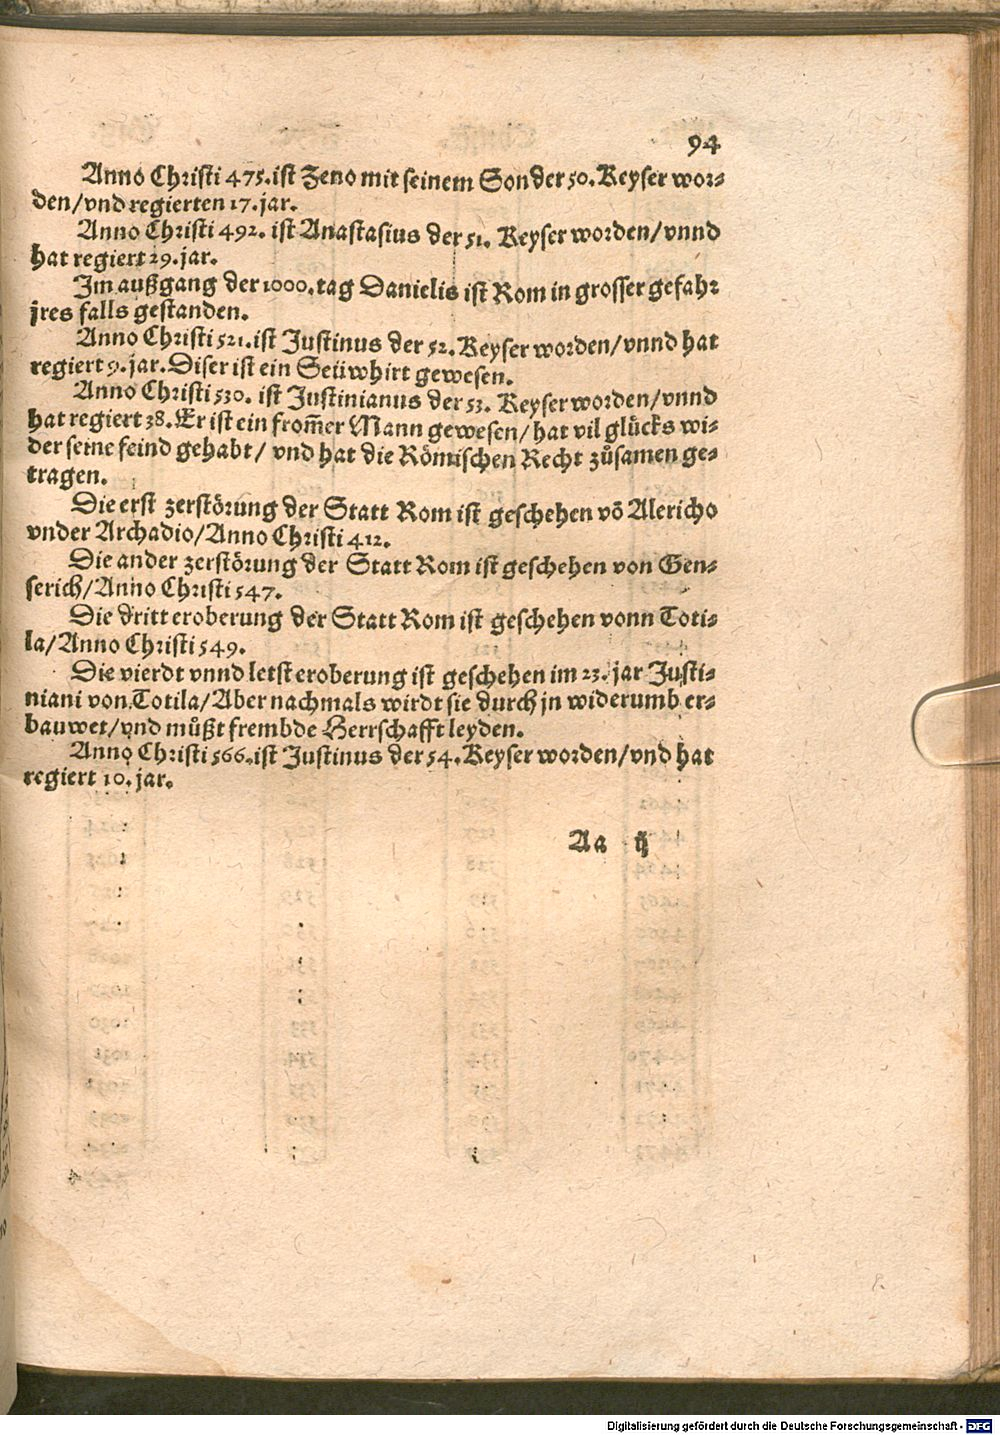 94
Anno Christi 475. ist Zeno mit seinem Son der 50. Keyser wor-
den/vnd regierten 17. jar.
Anno Christi 492. ist Anastasius der 51. Keyser worden/vnnd
hat regiert 29. jar.
Im außgang der 1000. tag Danielis ist Rom in grosser gefahr
jres falls gestanden.
Anno Christi 521. ist Justinus der 52. Keyser worden/vnnd hat
regiert 9. jar. Diser ist ein Seüwhirt gewesen.
Anno Christi 530. ist Justinianus der 53. Keyser worden/vnnd
hat regiert 38. Er ist ein from̃er Mann gewesen/hat vil glücks wi-
der seine feind gehabt/ vnd hat die Römischen Recht zůsamen ge-
tragen.
Die erst zerstörung der Statt Rom ist geschehen võ Alericho
vnder Archadio/Anno Christi 412.
Die ander zerstörung der Statt Rom ist geschehen von Gen-
serich/Anno Christi 547.
Die dritt eroberung der Statt Rom ist geschehen vonn Toti-
la/Anno Christi 549.
Die vierdt vnnd letst eroberung ist geschehen im 23. jar Justi-
niani von Totila/Aber nachmals wirdt sie durch jn widerumb er-
bauwet/vnd müßt frembde Herrschafft leyden.
Anno Christi 566. ist Justinus der 54. Keyser worden/vnd hat
regiert 10. jar.
Aa ij
Digitalisierung gefördert durch die Deutsche Forschungsgemeinschaft - DFG